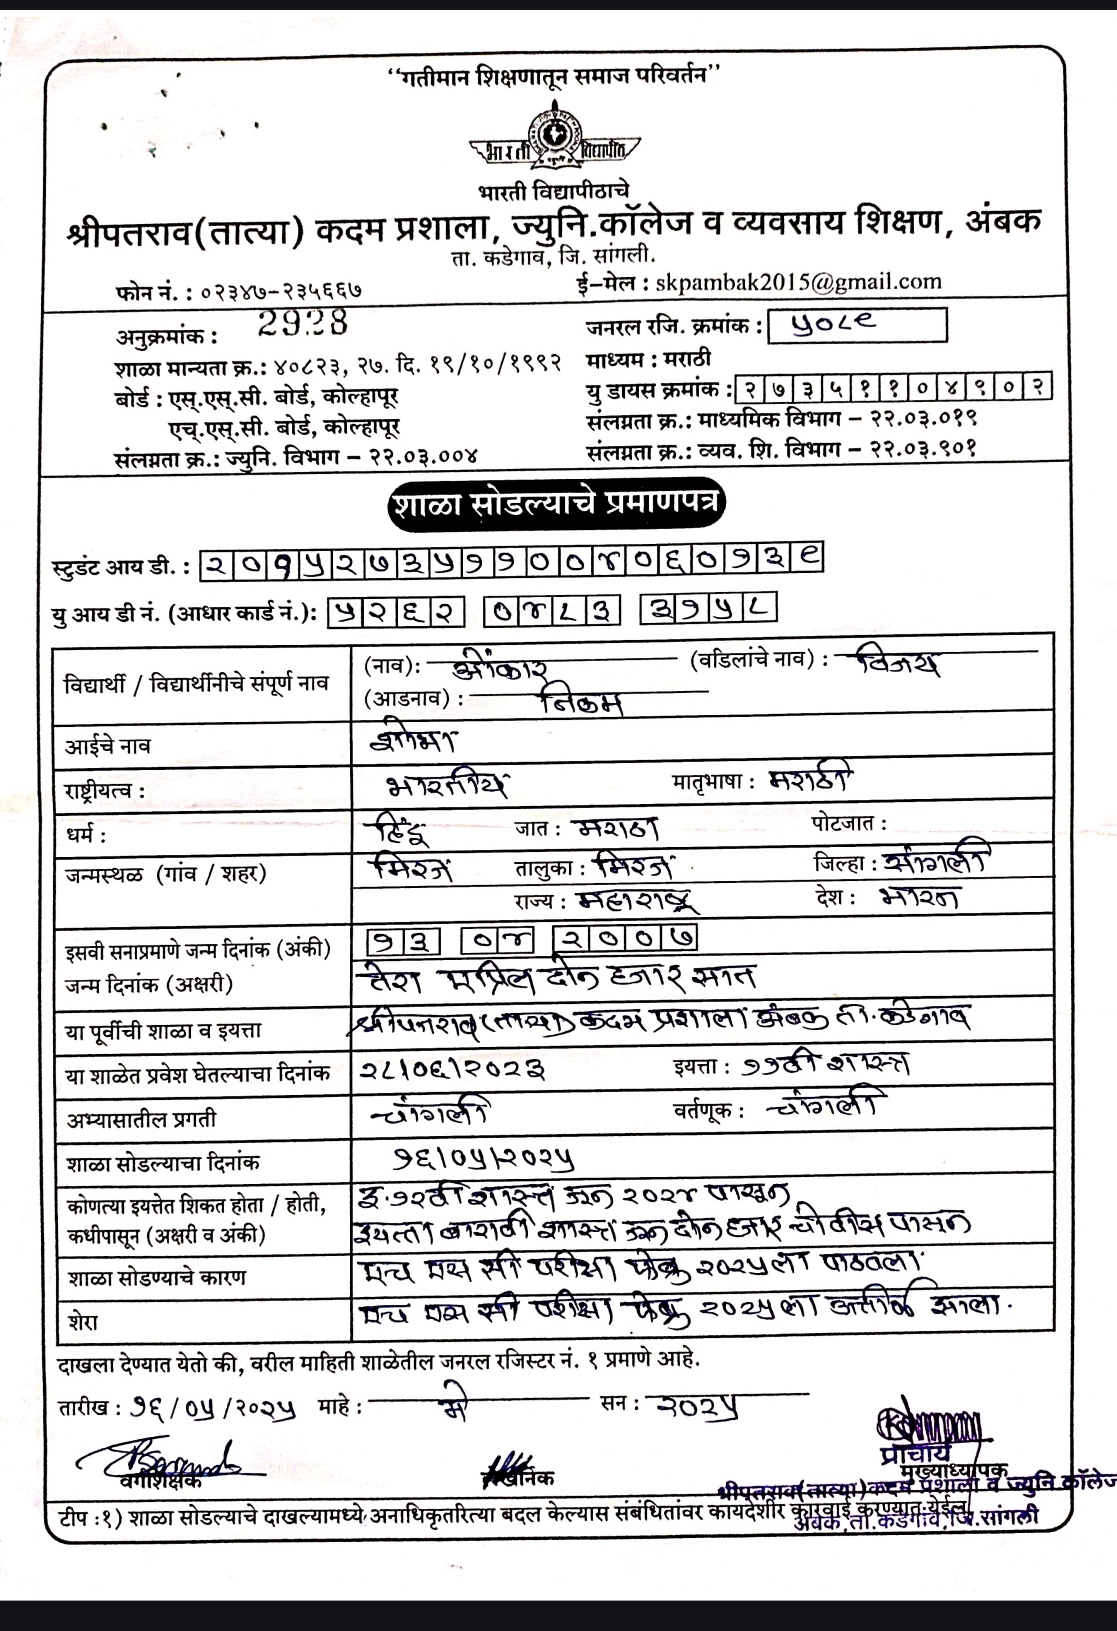 “गतीमान शिक्षणातून समाज परिवर्तन”
भारती विद्यापीठ
भारती विद्यापीठाचे
श्रीपतराव(तात्या) कदम प्रशाला, ज्युनि.कॉलेज व व्यवसाय शिक्षण, अंबक
ता. कडेगाव, जि. सांगली.
फोन नं. : ०२३४७-२३५६६७ ई-मेल : skpambak2015@gmail.com
अनुक्रमांक : 2928 जनरल रजि. क्रमांक : ५०८९
शाळा मान्यता क्र.: ४०८२३, २७. दि. १९/१०/१९९२ माध्यम : मराठी
बोर्ड : एस्.एस्.सी. बोर्ड, कोल्हापूर यु डायस क्रमांक : २७३५११०४९०२
एच्.एस्.सी. बोर्ड, कोल्हापूर संलग्नता क्र.: माध्यमिक विभाग - २२.०३.०१९
संलग्नता क्र.: ज्युनि. विभाग - २२.०३.००४ संलग्नता क्र.: व्यव. शि. विभाग - २२.०३.९०१
शाळा सोडल्याचे प्रमाणपत्र
स्टुडंट आय डी. : २०१५२७३५११००४०६०१३९
यु आय डी नं. (आधार कार्ड नं.): ५२६२ ०४८३ ३१५८
विद्यार्थी / विद्यार्थीनीचे संपूर्ण नाव (नाव): ओंकार (वडिलांचे नाव) : विजय
(आडनाव) : निकम
आईचे नाव शोभा
राष्ट्रीयत्व : भारतीय मातृभाषा : मराठी
धर्म : हिंदू जात : मराठा पोटजात :
जन्मस्थळ (गांव / शहर) मिरज तालुका : मिरज जिल्हा : सांगली
राज्य : महाराष्ट्र देश : भारत
इसवी सनाप्रमाणे जन्म दिनांक (अंकी) १३ ०४ २००७
जन्म दिनांक (अक्षरी) तेरा एप्रिल दोन हजार सात
या पूर्वीची शाळा व इयत्ता श्रीपतराव (तात्या) कदम प्रशाला अंबक ता. कडेगाव
या शाळेत प्रवेश घेतल्याचा दिनांक २८/०६/२०२३ इयत्ता : ११वी शास्त्र
अभ्यासातील प्रगती चांगली वर्तणूक : चांगली
शाळा सोडल्याचा दिनांक १६/०५/२०२५
कोणत्या इयत्तेत शिकत होता / होती, इ. १२वी शास्त्र जून २०२४ पासून
कधीपासून (अक्षरी व अंकी) इयत्ता बारावी शास्त्र जून दोन हजार चोवीस पासून
शाळा सोडण्याचे कारण एच एस सी परीक्षा फेब्रु २०२५ला पाठवला
शेरा एच एस सी परीक्षा फेब्रु २०२५ला उत्तीर्ण झाला.
दाखला देण्यात येतो की, वरील माहिती शाळेतील जनरल रजिस्टर नं. १ प्रमाणे आहे.
तारीख : १६/०५/२०२५ माहे : मे सन : २०२५
प्राचार्य
वर्गशिक्षक मुख्याध्यापक
श्रीपतराव(तात्या)कदम प्रशाला व ज्युनि कॉलेज
टीप :१) शाळा सोडल्याचे दाखल्यामध्ये अनाधिकृतरित्या बदल केल्यास संबंधितांवर कायदेशीर कारवाई करण्यात येईल.
अंबक,ता.कडेगांव,जि.सांगली